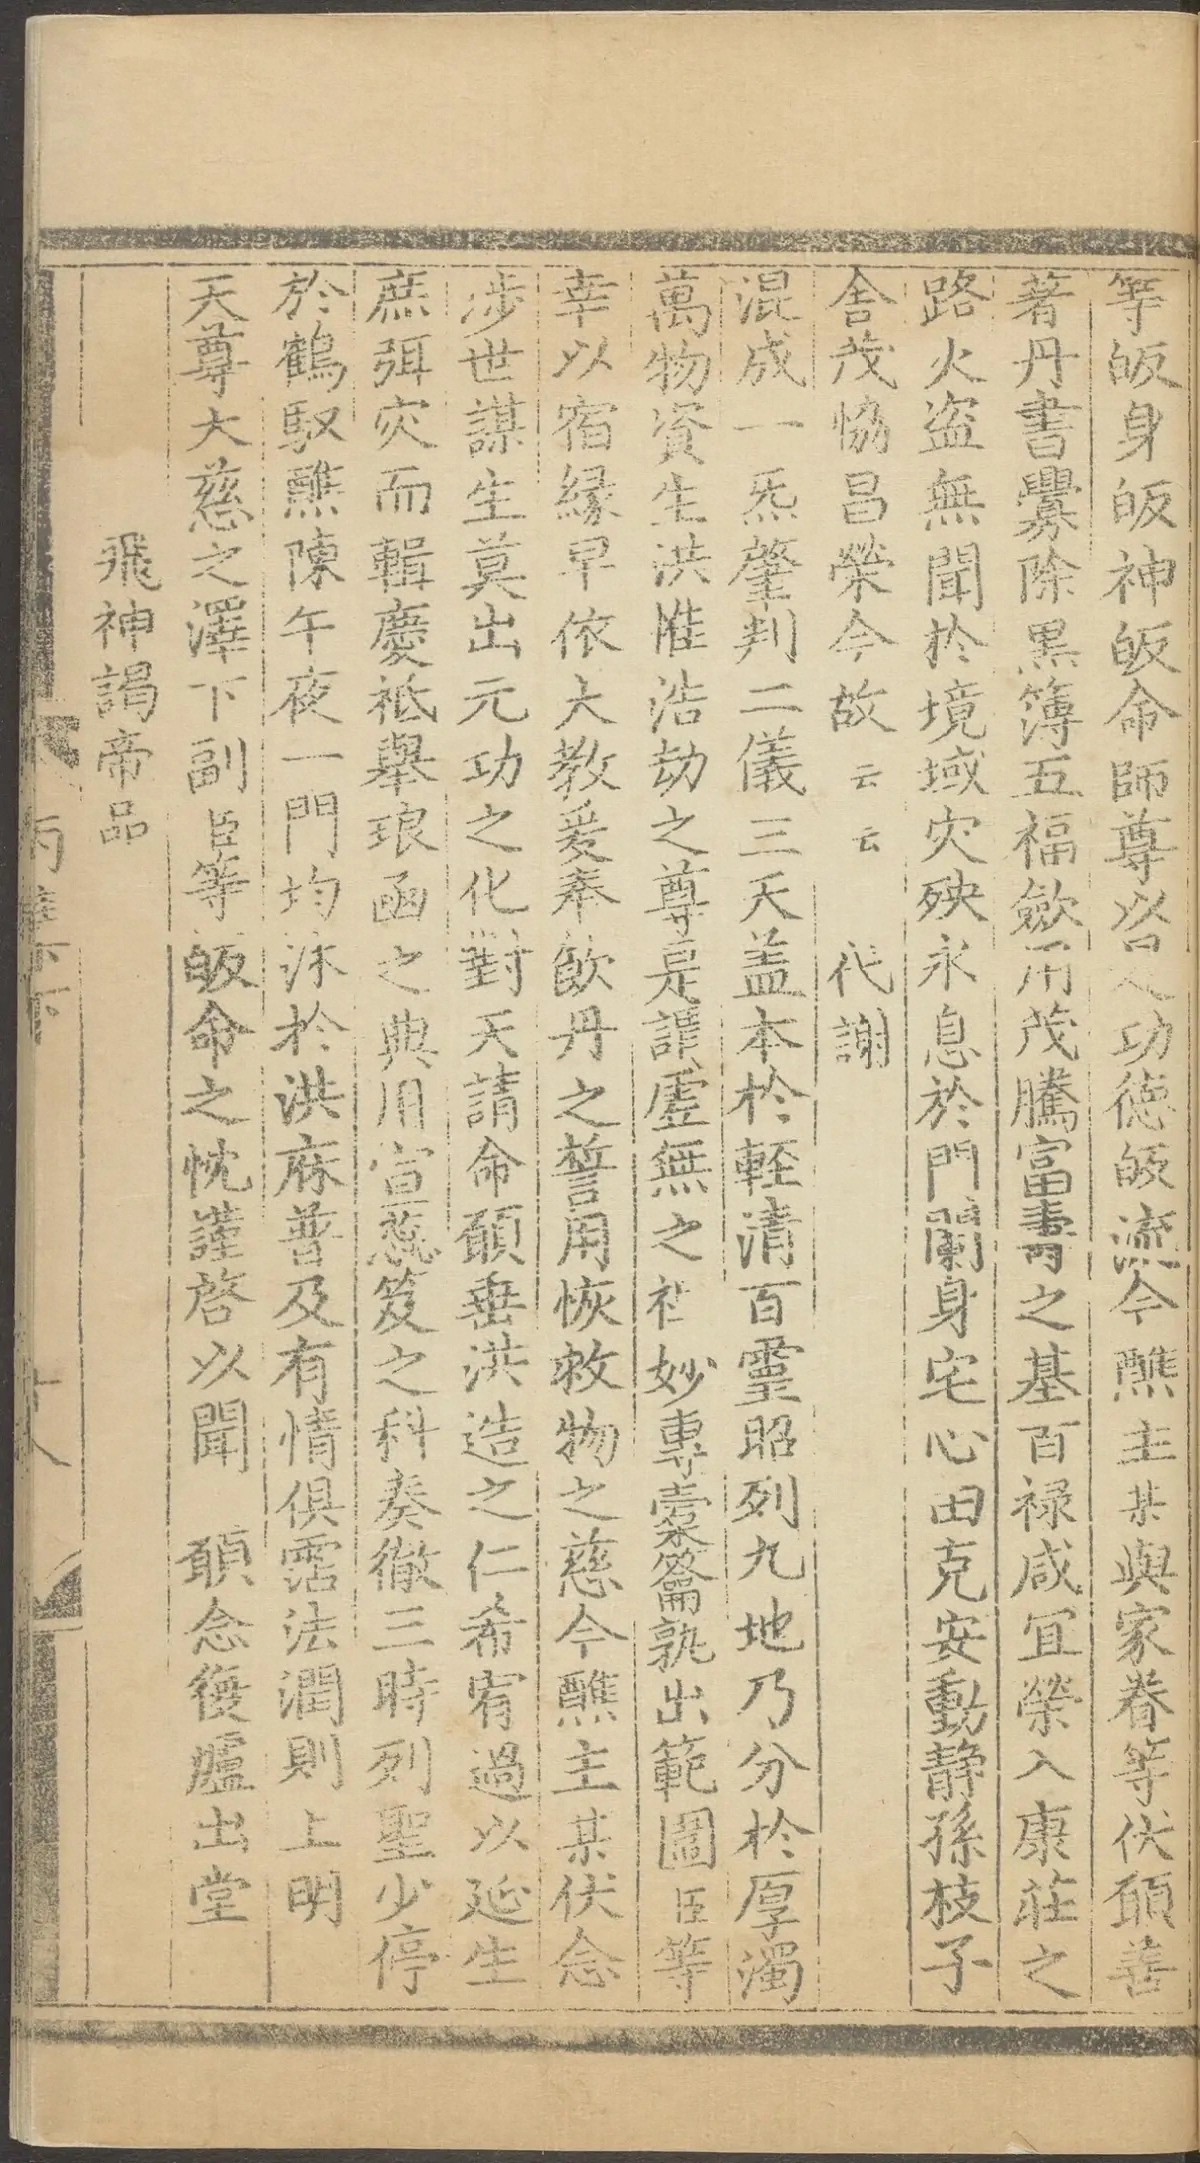 等皈身皈神皈命師尊以召之功德皈流今醮主某與家眷等伏願善
著丹書釁除黒簿五福歛用茂騰富夀之基百禄咸冝榮入康莊之
路火盗無聞於境域灾殃永息於門闌身宅心田克安動静孫枝子
舍茂恊昌榮今故云云 代謝
混成一炁肇判二儀三天盖本於輕清百靈昭列九地乃分於厚濁
萬物資生洪惟浩劫之尊是謂虚無之祖妙專槖籥孰出範圍臣等
幸以宿緣早依大教爰奉飲丹之誓用恢救物之慈今醮主某伏念
涉世謀生莫出元功之化對天請命願垂洪造之仁希宥過以延生
庶弭灾而輯慶祗舉琅函之典用宣蕊笈之科奏徹三時列聖少停
於鶴馭醮陳午夜一門均沐於洪庥普及有情俱霑法潤則上明
天尊大慈之澤下副臣等皈命之忱謹啓以聞 願念復爐出堂
飛神謁帝品